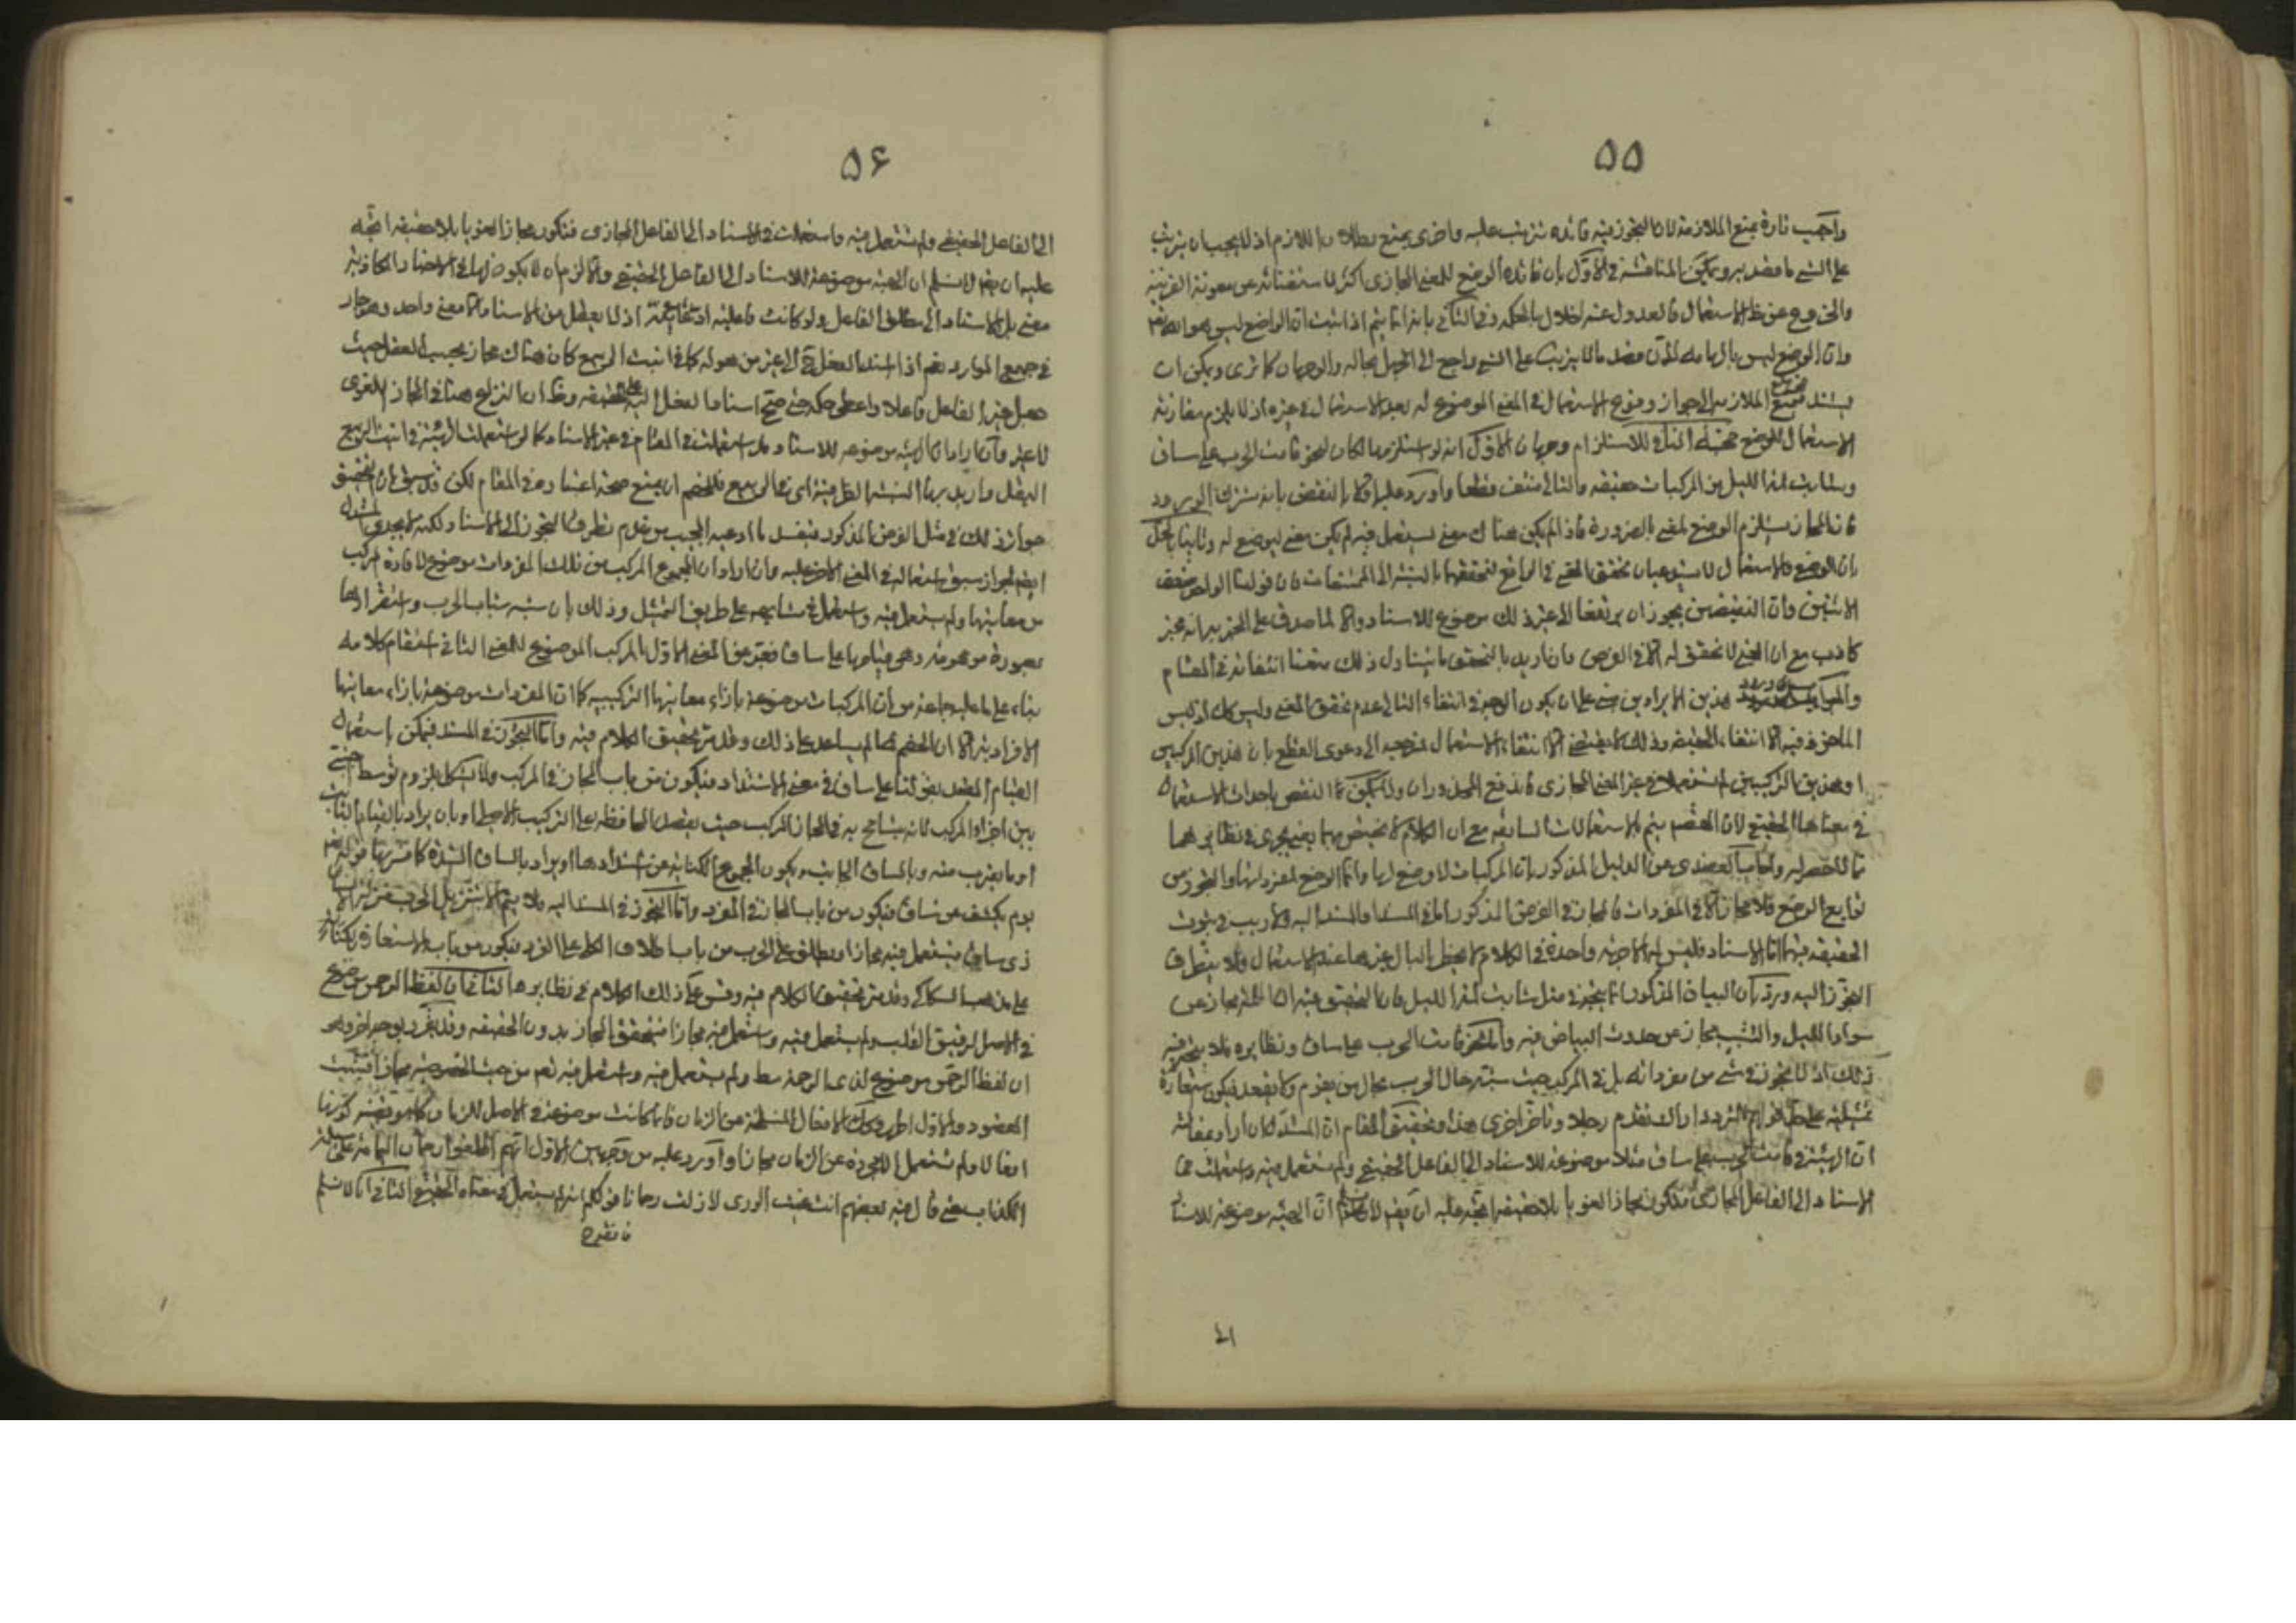 ٥٥
واجيب تارة بمنع الملازمة لان التجوز فيه فائدة تترتب عليه واخرى بمنع بطلان اللازم اذ لا يجب ان يترتب
على الشيء ما قصد به ويمكن المناقشة في الاول بان فائدة الوضع للمعنى المجازى اكثر لاستغنائه عن معونة القرينة
والخروج عن الاستعمال فالعدول عنه اخلال بالحكمة وفي الثاني بانه انما يتم اذا ثبت ان الواضع ليس هو الله تعالى
وان الوضع ليس بالهامه لان قصد ما لا يترتب على الشيء راجع الى الجهل بحاله والوجهان كما ترى ويمكن ان
يستند منع الملازمة الى جواز وقوع الاستعمال في المعنى الموضوع له بعد الاستعمال في غيره اذ لا يلزم مقارنة
الاستعمال للوضع حجة النافي للاستلزام وجهان الاول انه لو استلزمها لكان لنحو قامت الحرب على ساق
وشابت لمة الليل من المركبات حقيقة والتالي منتف قطعا واورد عليه اولا بالنقض بانه مشترك الورود
فان المجاز يستلزم الوضع لمعنى بالضرورة فاذا لم يكن هناك معنى يستعمل فيه لم يكن معنى ليوضع له وثانيا بالحل
بان الوضع والاستعمال لا يستدعيان تحقق المعنى في الواقع لتحققهما بالنسبة الى الممتنعات فان قولنا الواحد نصف
الاثنين وان النقيضين يجوز ان يرتفعا الى غير ذلك موضوع للاسناد والا لما صدق على المخبر به انه مخبر
كاذب مع ان المعنى لا تحقق له الا في الفرض وان اريد بالتحقق ما يتناول ذلك منعنا انتفائه في المقام
والجواب ورود هذين الايرادين مبنى على ان يكون الوجه في انتفاء التالي عدم تحقق المعنى وليس كذلك اذ ليس
الماخوذ فيه الا انتفاء الحقيقة وذلك لا يقتضى الا انتفاء الاستعمال فمرجعه الى دعوى القطع بان هذين المركبين
او هذين التركيبين لم يستعملا في غير المعنى المجازى فاندفع المحذوران ولا يمكن النقض باحداث الاستعمال
في معناهما الحقيقي لان الخصم يتم بالاستعمالات السابقة مع ان الكلام لا يختص بهما بمعنى يجرى في نظايرهما
مما لا حصر له واجاب العضدى عن الدليل المذكور بان المركبات لا وضع لها وانما الوضع لمفرداتها والتجوز من
توابع الوضع فلا مجاز الا في المفردات فالمجاز في الفرض المذكور اما في المسند او المسند اليه ولا ريب في ثبوت
الحقيقة فيهما اما الاسناد فليس له الا جهة واحدة في الكلام لا يخطر بالبال غيرها عند الاستعمال فلا يتطرق
التجوز اليه ورد بان البيان المذكور انما يتجه في مثل شابت لمة الليل فان التحقيق فيه ان اللمة مجاز عن
سواد الليل والشيب مجاز عن حدوث البياض فيه واما نحو قامت الحرب على ساق ونظايره فلا يتجه فيه
ذلك اذ لا تجوز في شيء من مفرداته بل في المركب حيث شبه حال الحرب بحال من يقوم ولا يقعد فيكون استعارة
تمثيلية على حد قولهم للمتردد اراك تقدم رجلا وتؤخر اخرى هذا وتحقيق المقام ان المستدل ان اراد بمقالته
ان الهيئة في قامت الحرب على ساق مثلا موضوعة للاسناد الى الفاعل الحقيقي ولم يستعمل فيه واستعملت في
الاسناد الى الفاعل المجازى فتكون مجازا لغويا بلا حقيقة اتجه عليه ان يقال لا نسلم ان الهيئة موضوعة للاسناد
الى
٥۶
الى الفاعل الحقيقي ولم تستعمل فيه واستعملت في الاسناد الى الفاعل المجازى فتكون مجازا لغويا بلا حقيقة اتجه
عليه ان يقال لا نسلم ان الهيئة موضوعة للاسناد الى الفاعل الحقيقي والا لزم ان لا يكون لها في الاخبار الكاذبة
معنى بل للاسناد الى مطلق الفاعل ولو كانت فاعليته ادعائية اذ لا يعقل من الاسناد الا معنى واحد وهو جار
في جميع الموارد نعم اذا اسند الفعل الى غير من هو له كما في انبت الربيع كان هناك مجاز بحسب العقل حيث
جعل غير الفاعل فاعلا واعطى حكمه حتى صح اسناد الفعل اليه حقيقة وظ ان النزاع هنا في المجاز اللغوى
لا غير وان اراد ان الهيئة موضوعة للاسناد وقد استعملت في المقام في غير الاسناد كما لو استعملت الهيئة في انبت الربيع
البقل واريد بها النسبة الظرفية اى في الربيع فللخصم ان يمنع صحة اعتباره في المقام لكن قد سبق ان التحقيق
جواز ذلك في مثل الفرض المذكور فيفسد ما ادعيه المجيب من عدم تطرق التجوز الى الاسناد ولكنه لا يجدى المستدل
ايضا لجواز سبق استعماله في المعنى الاخر عليه وان اراد ان المجموع المركب من تلك المفردات موضوع لافادة المركب
من معانيها ولم يستعمل فيه واستعمل في مشابهه على طريق التمثيل وذلك بان شبه شباب الحرب واستقرارها
بصورة موهومة وهي قيامها على ساق فعبر عن المعنى الاول بالمركب الموضوع للمعنى الثاني استقام كلامه
بناء على ما عليه جماعة من ان المركبات موضوعة بازاء معانيها التركيبية كما ان المفردات موضوعة بازاء معانيها
الافرادية الا ان الخصم مما لم يساعد على ذلك وقد مر تحقيق الكلام فيه واما التجوز في المسند فيمكن باستعمال
القيام المقيد بقولنا على ساق في معنى الاشتداد فيكون من باب المجاز في المركب ولا يشكل بلزوم توسط اجنبي
بين اجزاء المركب لانه يتسامح به في المجاز المركب حيث يقصد المحافظة على التركيب الاصلي او بان يراد بالقيام الثابت
او ما يقرب منه وبالساق الجانب ويكون المجموع كناية عن اشتدادها او يراد بالساق الشدة كما فسر بها قوله تعالى
يوم يكشف عن ساق فيكون من باب المجاز في المفرد واما التجوز في المسند اليه فلا يتم الا بتنزيل الحرب منزلة
ذى ساق فيستعمل فيه مجازا او يطلق على الحرب من باب اطلاق الكلي على الفرد فيكون من باب الاستعارة بالكناية
على مذهب السكاكي وقد مر تحقيق الكلام فيه وقس على ذلك الكلام في نظايرها الثاني ان لفظ الرحمن موضوع
في الاصل لرقيق القلب ولم يستعمل فيه واستعمل فيه مجازا فتحقق المجاز بدون الحقيقة وقد يقرر بوجه اخر وهو
ان لفظ الرحمن موضوع لذى الرحمة مط ولم يستعمل فيه واستعمل فيه تعم من حيث الخصوصية مجازا فيثبت
المقصود والاول اظهر وكذا الافعال المنسلخة عن الزمان فانها كانت موضوعة في الاصل للزمان كما هو قضية كونها
افعالا ولم تستعمل الا مجردة عن الزمان مجازا واورد عليه من وجهين الاول انهم اطلقوا رحمان اليمامة على مسيلمة
الكذاب حتى قال فيه بعضهم انت غيث الورى لا زلت رحمانا فقولكم انه لم يستعمل في معناه الحقيقي الثاني انا لا نسلم